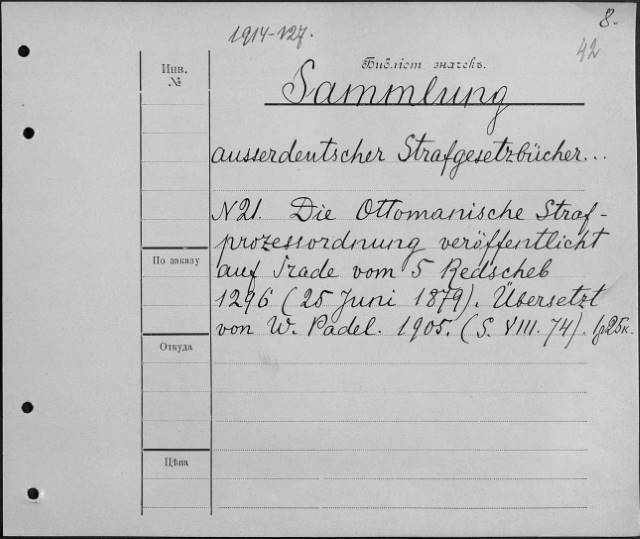 8.
1914-127.
42
Инв.
№
Библіот значекъ.
Sammlung
ausserdeutscher Strafgesetzbücher...
N 21. Die Ottomanische Straf-
prozessordnung veröffentlicht
По заказу
auf Irade vom 5 Redscheb
1296 (25 Juni 1879). Übersetzt
von W. Padel. 1905. (S. VIII. 74). 1р25к.
Откуда
Цѣна